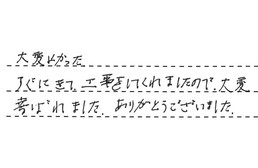 大変よかった
すぐにきて、工事をしてくれましたので、大変
喜ばれました、ありがとうございました、